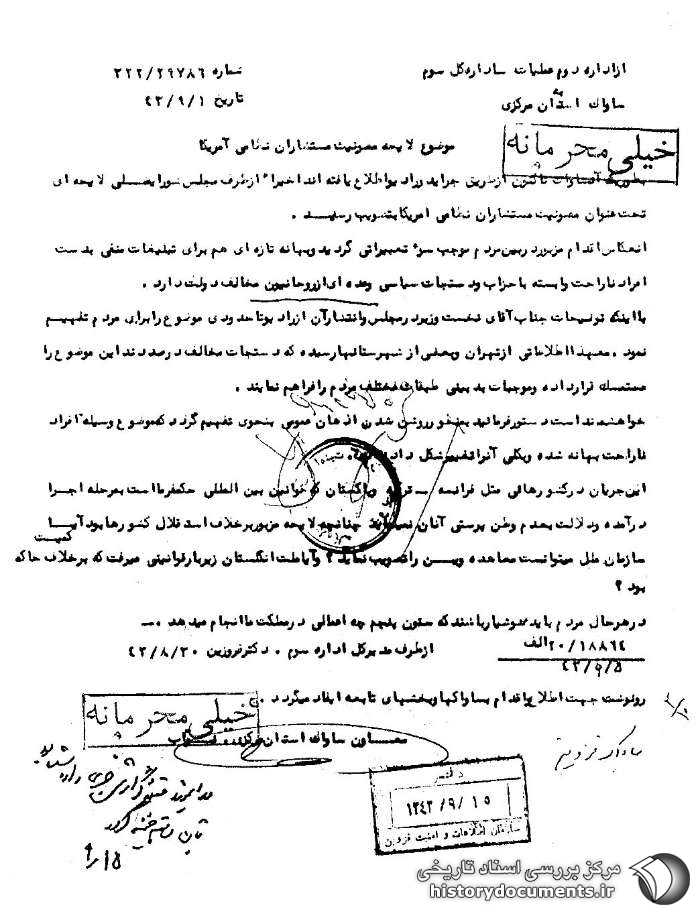 از اداره دوم عملیات ساداره کل سوم
شماره ۳۲۲/۲۹۷۸۶
به ساواک استان مرکزی
تاریخ ۴۳/۹/۱
خیلی محرمانه
موضوع لایحه مصونیت مستشاران نظامی آمریکا
بطوریکه آقسا‌وات تاکنون ازطریق جراید ورادیو اطلاع یافته اند اخیرا" ازطرف مجلس شورایملی لایحه ای
تحت عنوان مصونیت مستشاران نظامی امریکا بتصویب رسید .
انعکاس اقدام مزبور دربین مردم موجب سوء تعبیراتی گردید وبهانه تازه ای هم برای تبلیغات منفی بدست
افراد ناراحت وابسته باحزاب ودستجات سیاسی وعده ای ازروحانیون مخالف دولت دارد .
بااینکه توضیحات جناب آقای نخست وزیر درمجلس وانتشارآن ازرادیو تاحدودی موضوع رابرای مردم تفهیم
نمود . معهذا اطلاعاتی ازتهران وبعضی از شهرستانها رسیده که دستجات مخالف درصددند این موضوع را
مستمسک قرارداده وموجبات بدبینی طبقات مختلف مردم رافراهم نمایند .
خواهشمند است دستورفرمائید بمنظور روشن شدن اذهان عمومی بنحوی تفهیم گردد که موضوع وسیله افراد
ناراحت بهانه شده وبکلی آنرا تغییرشکل داده
این جریان درکشورهائی مثل فرانسه - ترکیه وپاکستان که قوانین بین المللی حکمفرما است بمرحله اجرا
درآمده ودلالت بعدم وطن پرستی آنان نمینماید چنانچه لایحه مزبور برخلاف استقلال کشورها بود آیا
سازمان ملل میتوانست معاهده وین راتصویب نماید ؟ وآیا ملت انگلستان زیربارقوانینی میرفت که برخلاف حاکمیت
بود ؟
درهرحال مردم باید هوشیارباشند که ستون پنجم چه اعمالی درمملکت ما انجام میدهد .
۲۰/۱۸۸۶۴ الف
۴۳/۹/۵
ازطرف مدیرکل اداره سوم . دکترفروزین ۴۳/۸/۳۰
رونوشت جهت اطلاع واقدام بساواکها وبخشهای تابعه ایفاد میگردد .
خیلی محرمانه
معاون ساواک استان مرکزی
ساواک قزوین
دفتر
۱۳۴۳/۹/۱۵
سازمان اطلاعات و امنیت قزوین
۹/۱۵
مرکز بررسی اسناد تاریخی
historydocuments.ir